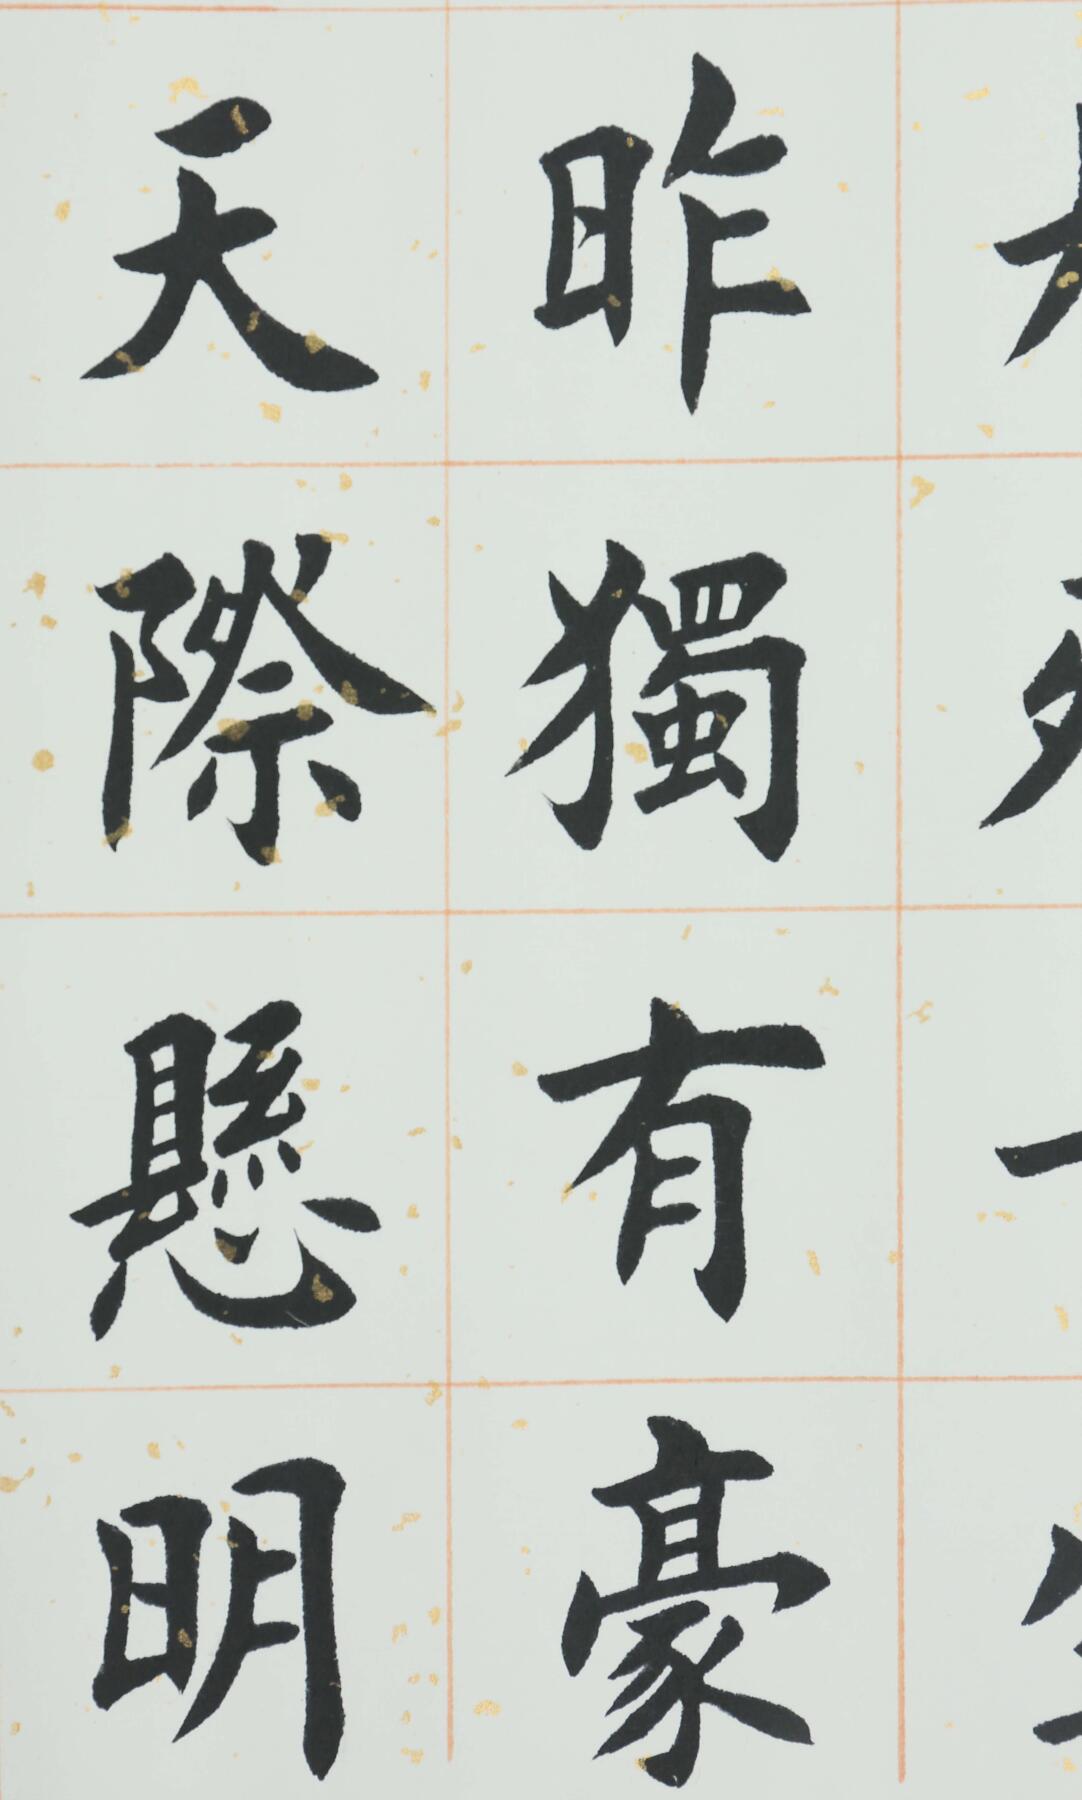 昨獨有豪
天際懸明